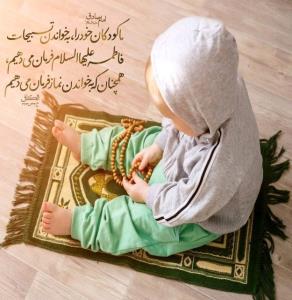 امام صادق
ما کودکان خود را، به خواندن تسبیحات
فاطمه علیها السلام فرمان می دهیم،
همچنان که به خواندن نماز فرمان می دهیم
الکافی